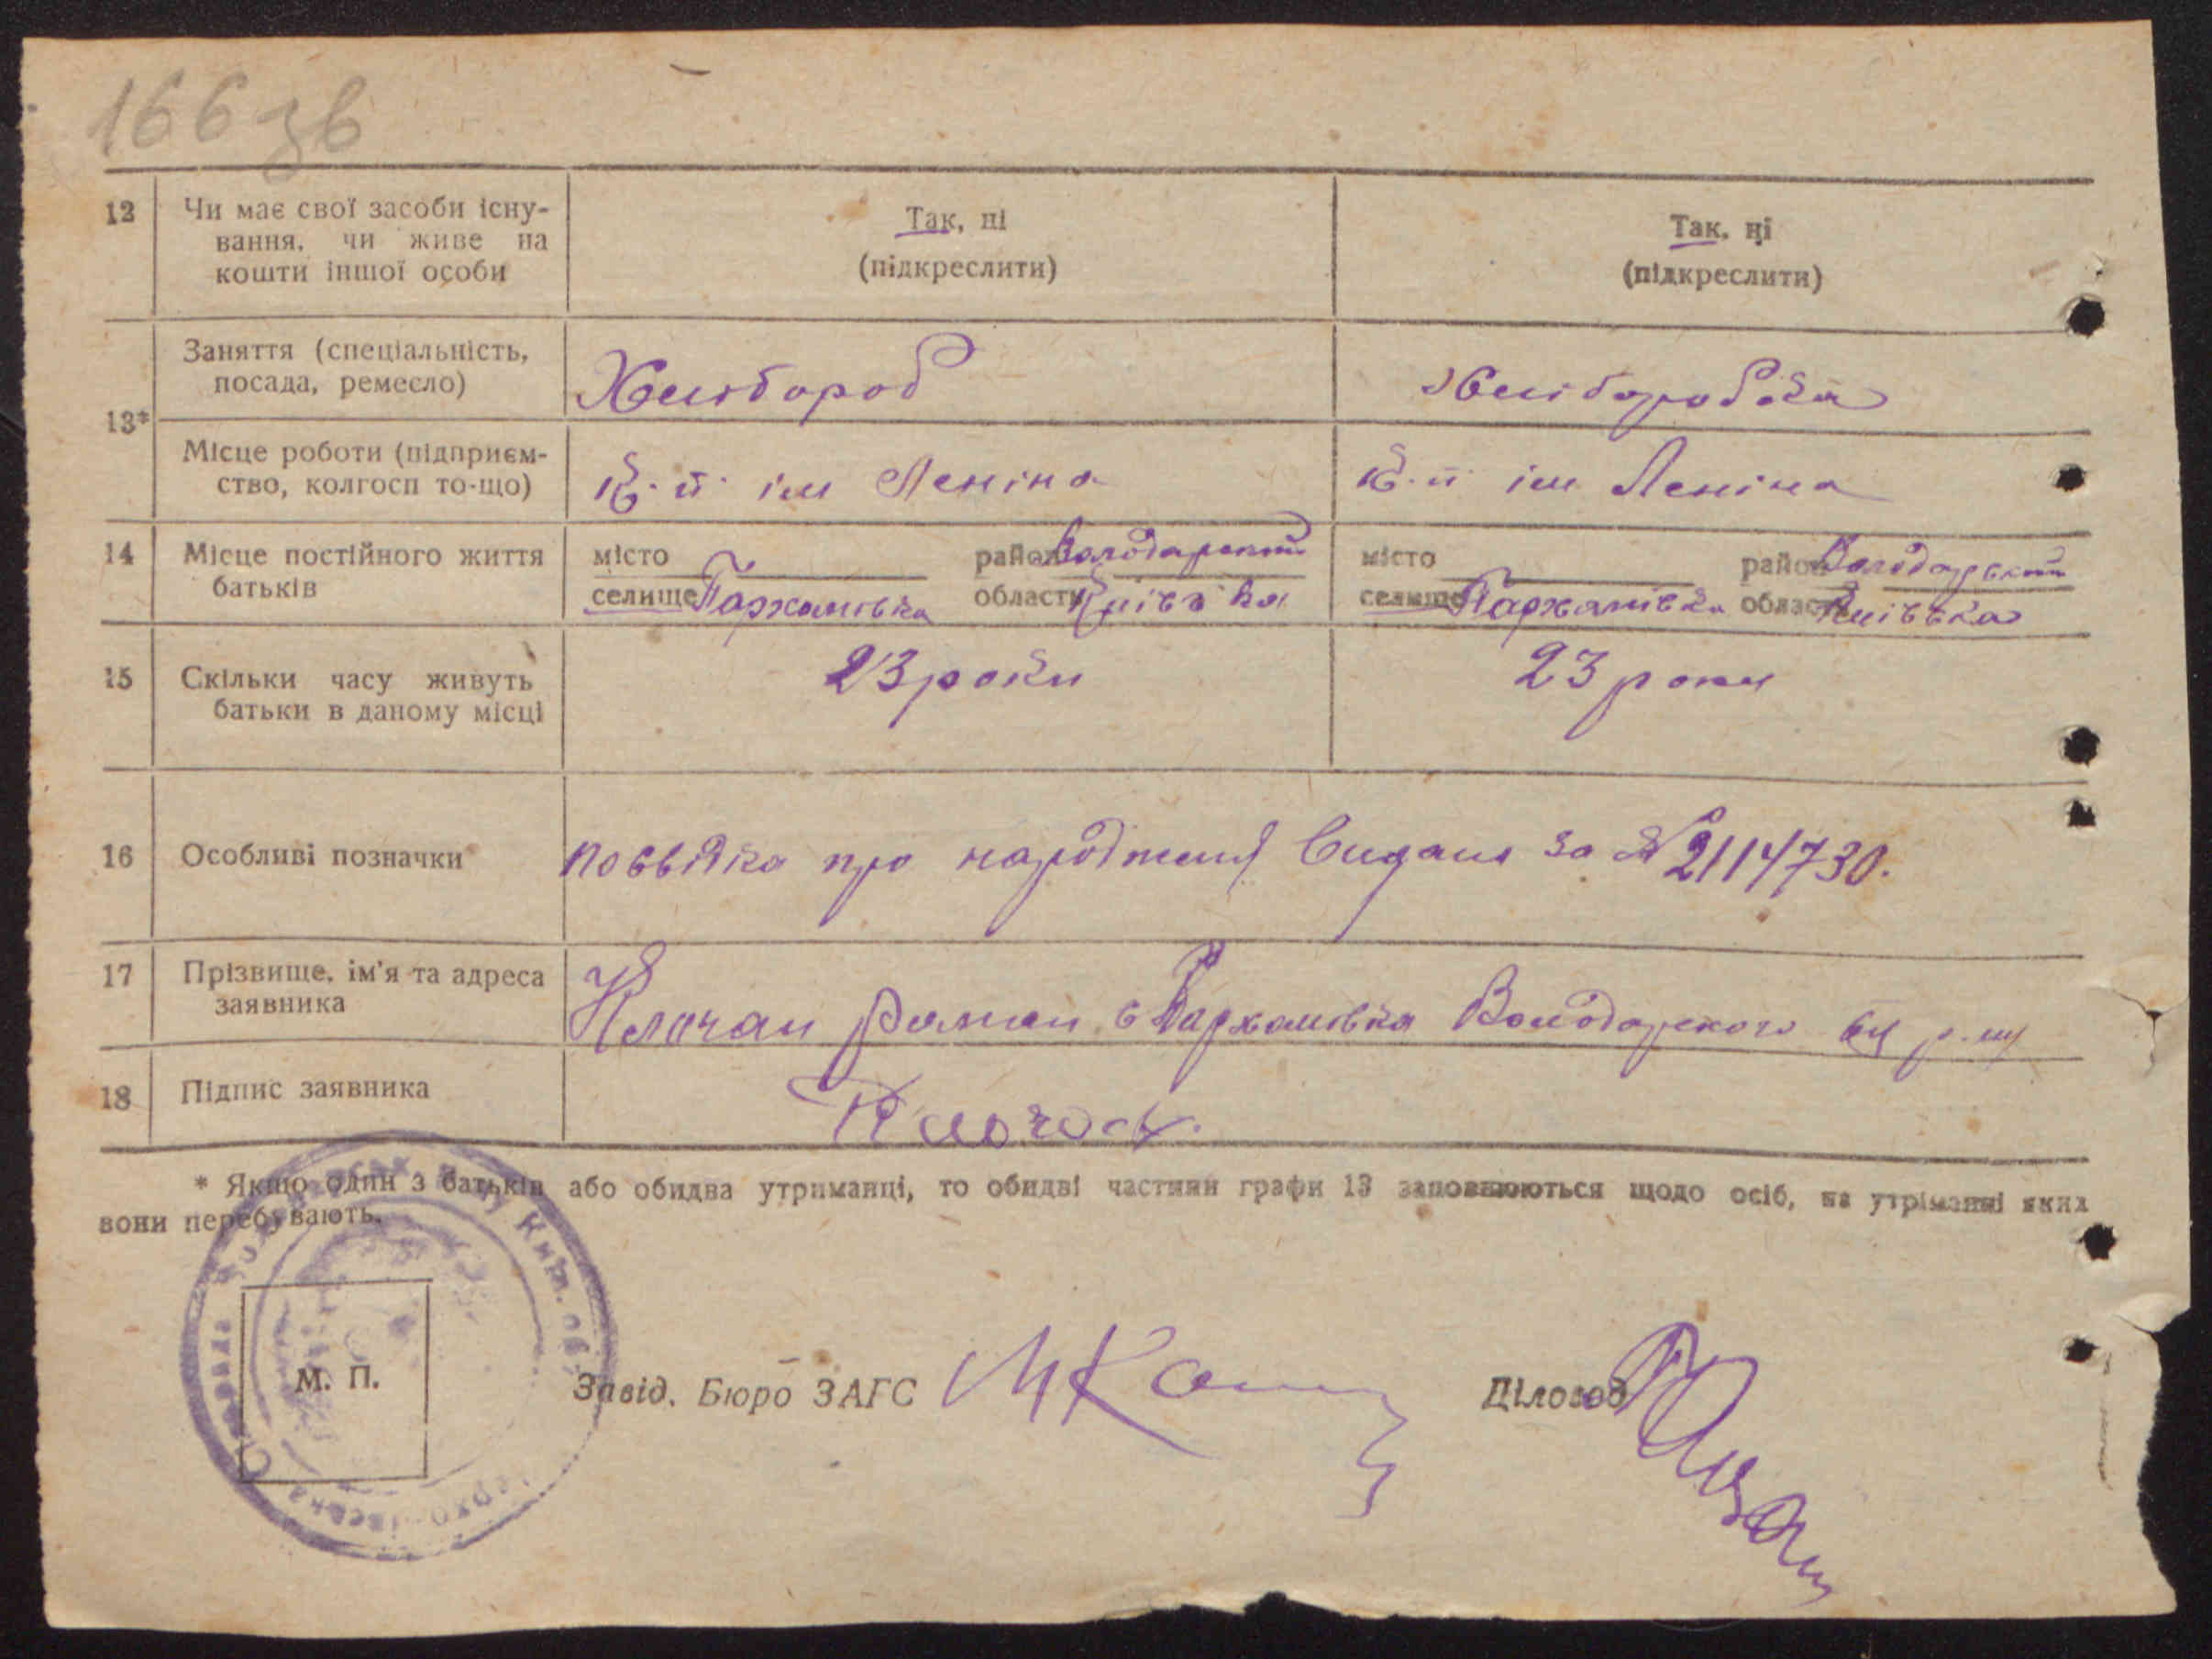 166 зв
12 Чи має свої засоби існу-
вання, чи живе на
кошти іншої особи
Так, ні
(підкреслити)
Так, ні
(підкреслити)
13*
Заняття (спеціальність,
посада, ремесло)
Хлибороб
хлиборобка
Місце роботи (підприєм-
ство, колгосп то-що)
ім Леніна
ім Леніна
14 Місце постійного життя
батьків
місто район Володарський
селище Пархомівка область Київська
місто район Володарський
селище Пархомівка область Київська
15 Скільки часу живуть
батьки в даному місці
23 роки
23 роки
16 Особливі позначки
посвідка про народження видана за № 2114730.
17 Прізвище, ім'я та адреса
заявника
Клочан Роман с Пархомівка Володарського р-ну
18 Підпис заявника
Клочан
* Якщо один з батьків або обидва утриманці, то обидві частини графи 13 заповнюються щодо осіб, на утріманні яких
вони перебувають.
М. П.
Завід. Бюро ЗАГС
Діловод